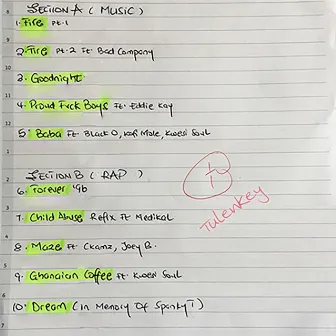 SECTION A (MUSIC)
1. Fire Pt. 1
2. Fire Pt. 2 Ft Bad Company
3. Goodnight
4. Proud Fvck Boys Ft. Eddie Kay
5. Baba Ft Black O, Kofi Mole, Kwesi Soul
SECTION B (RAP)
6. Forever 96
7. Child Abuse Refix Ft Medikal
8. Maze Ft Ckamz, Joey B.
9. Ghanaian Coffee Ft. Kwesi Soul
10. Dream (In Memory Of Spanky T)
Tulenkey